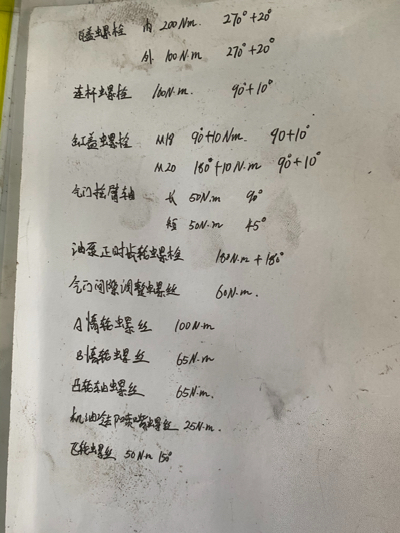 瓦盖螺栓 内 200Nm. 270°+20°
外 100N.m 270°+20°
连杆螺栓 100N.m 90°+10°
缸盖螺栓 M18 90°+10Nm. 90+10°
M20 180°+10N.m 90°+10°
气门摇臂轴 长 50N.m 90°
短 50N.m 45°
油泵正时齿轮螺栓 180N.m+180°
气门间隙调整螺丝 60N.m.
A惰轮螺丝 100N.m
B惰轮螺丝 65N.m
凸轮轴螺丝 65N.m.
机油冷却喷嘴螺丝 25N.m.
飞轮螺丝 50N.m